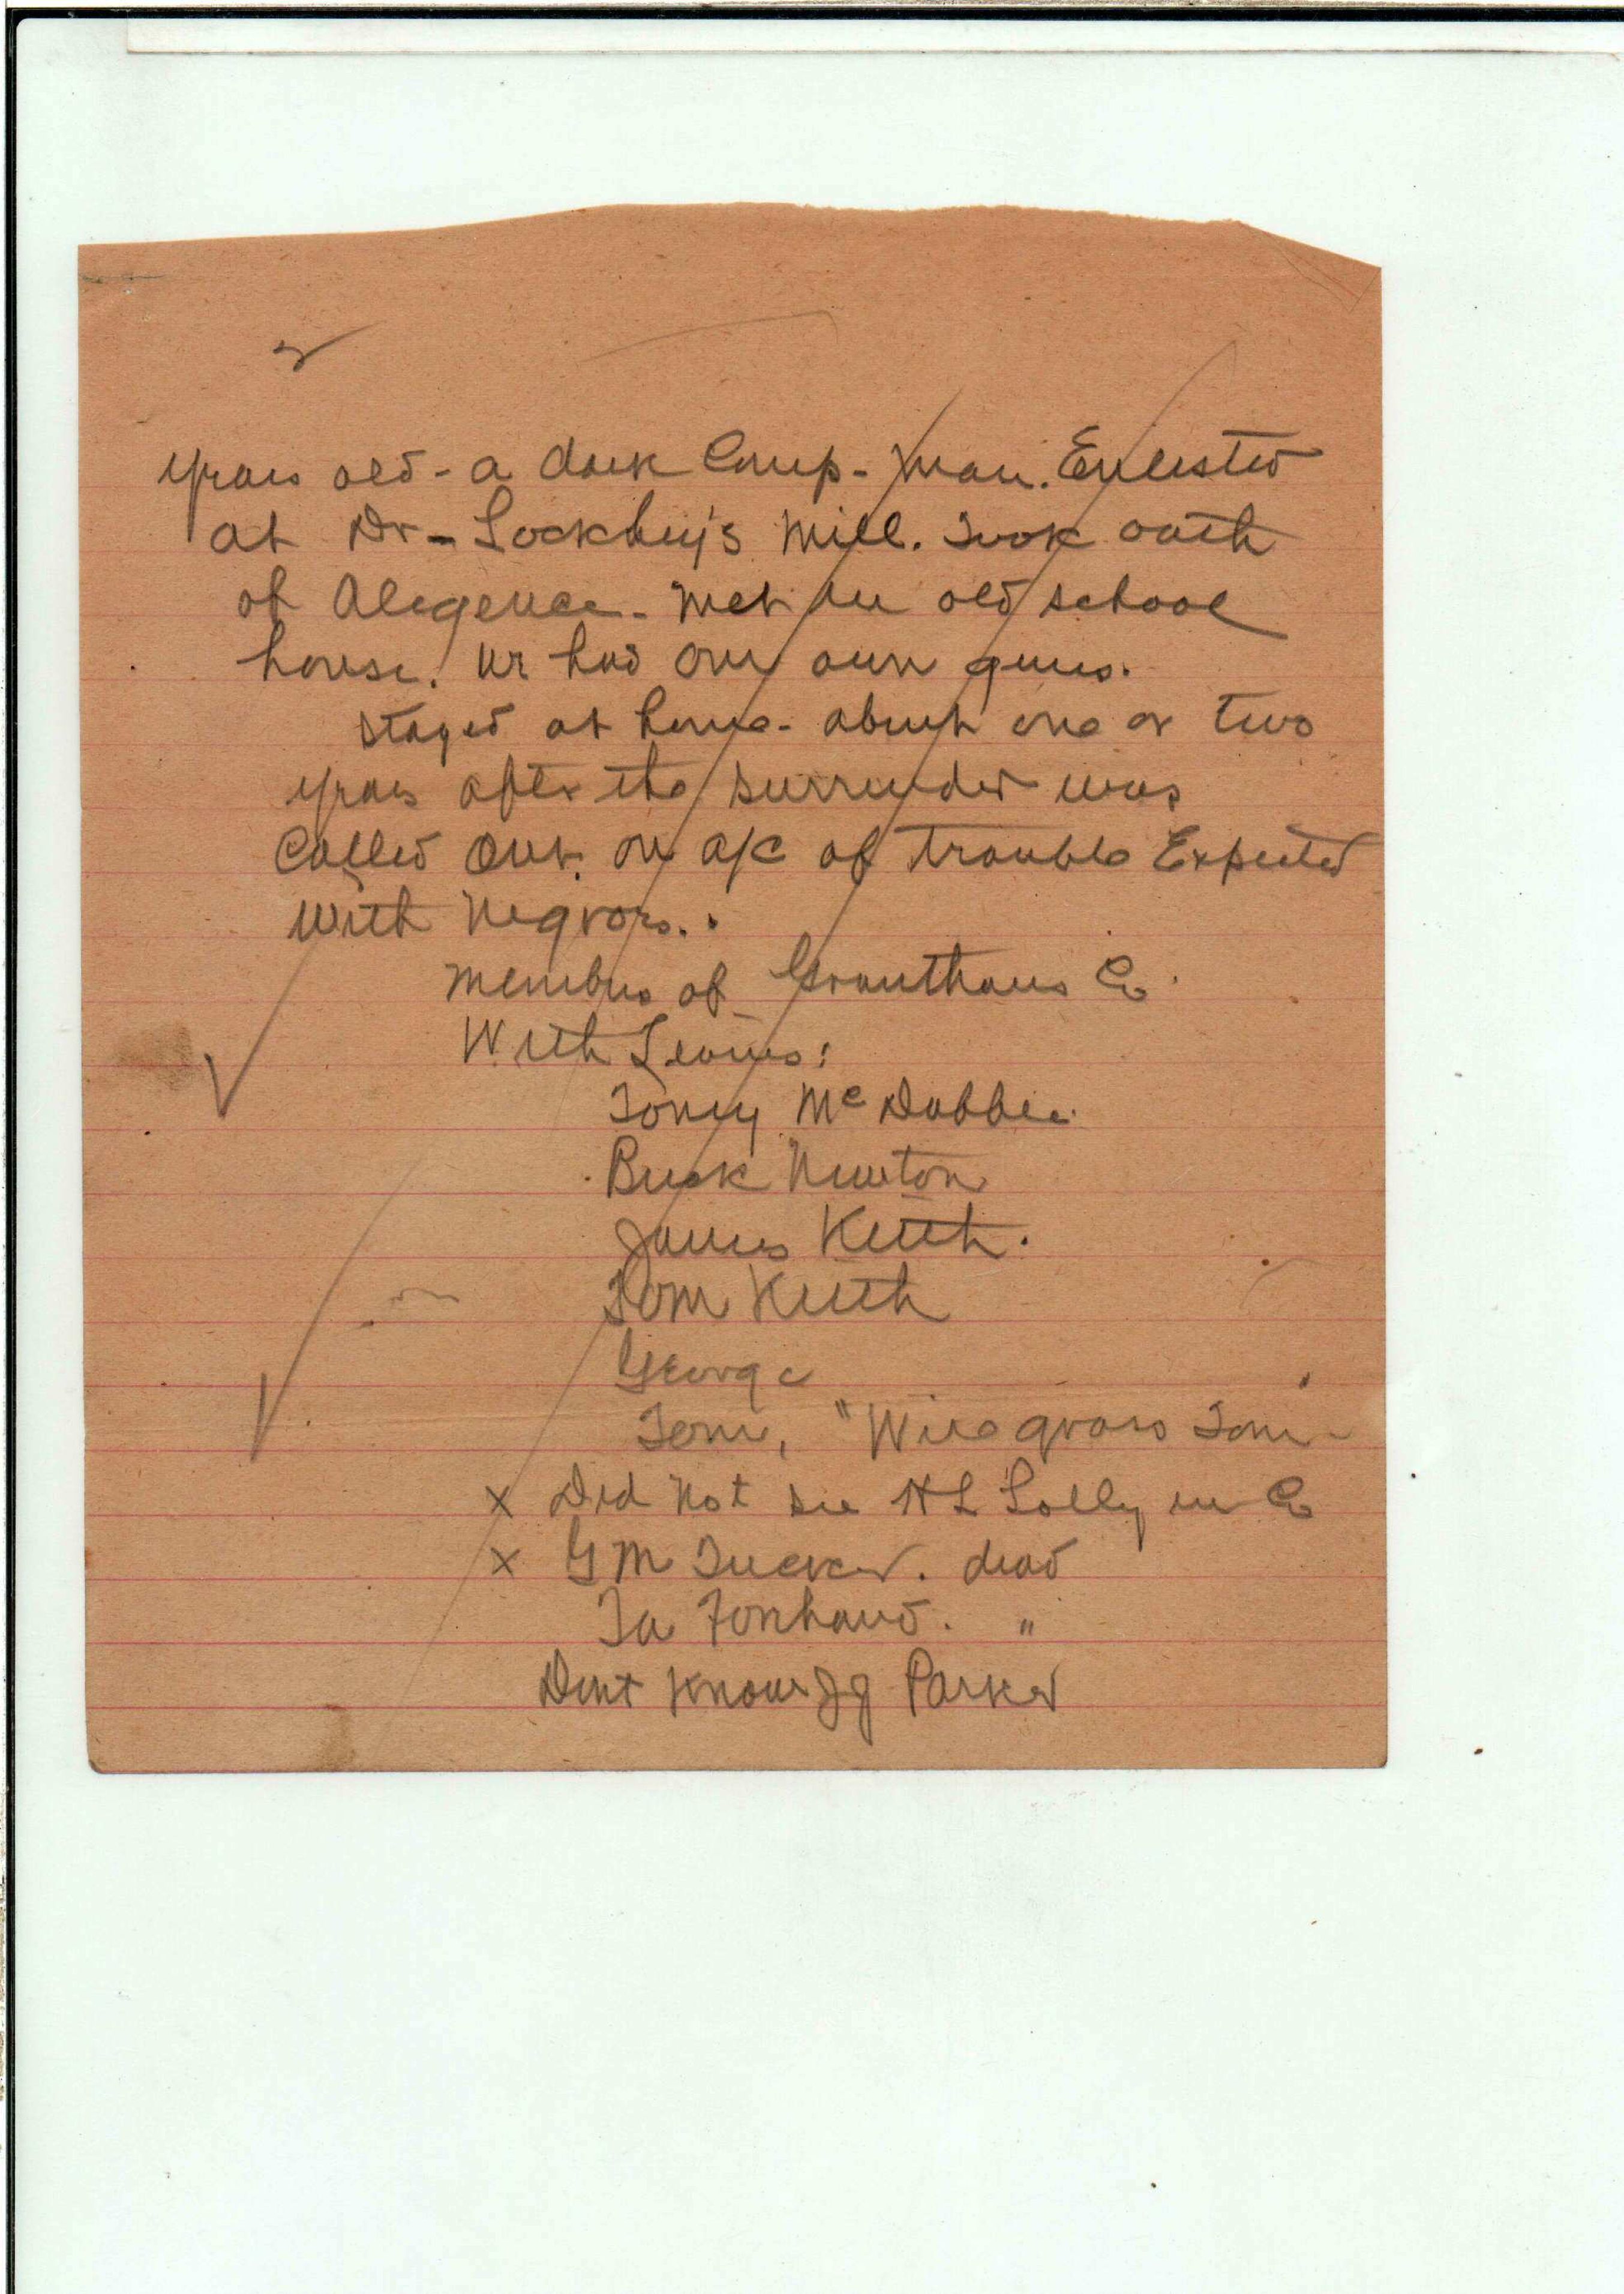 years old - a dark Comp - man. Enlisted
at Dr - Lockhey's Mill. Took oath
of Alegence - Met in old school
house. We had our own guns.
stayed at home - about one or two
years after the surrender was
Called Out. on a/c of trouble Expected
with Negroes.
Members of Granthams Co.
With Lewis:
Toney McDobbie.
Buck Newton
James Keith.
Tom Keith
George
Tom, "Wiregrass Tom -
x Did Not see H L Lolly in Co
x G M Tucker. dead
"
Dont Know J J Parker